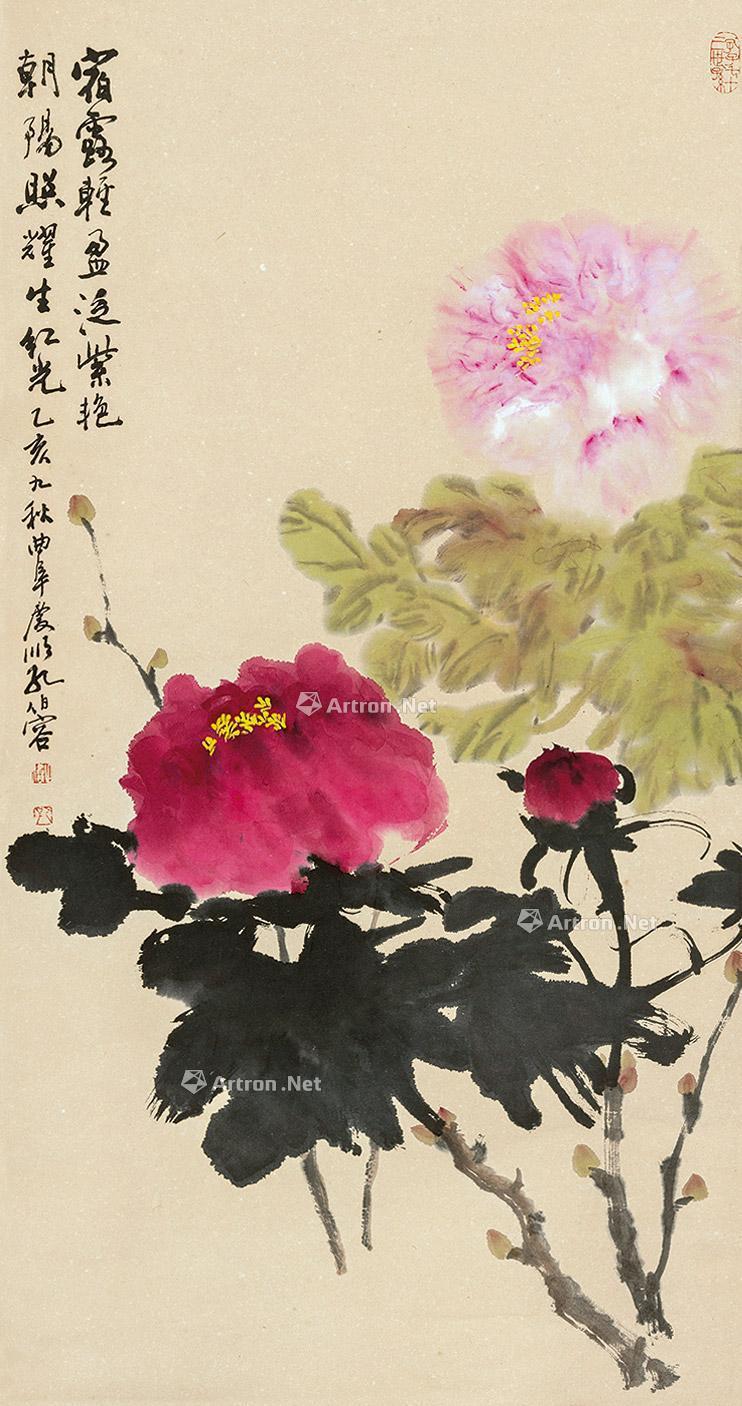 宿露輕盈泛紫艳
朝陽照耀生紅光 乙亥九秋曲阜慶順孔
Artron.Net
Artron.Net
Artron.Net